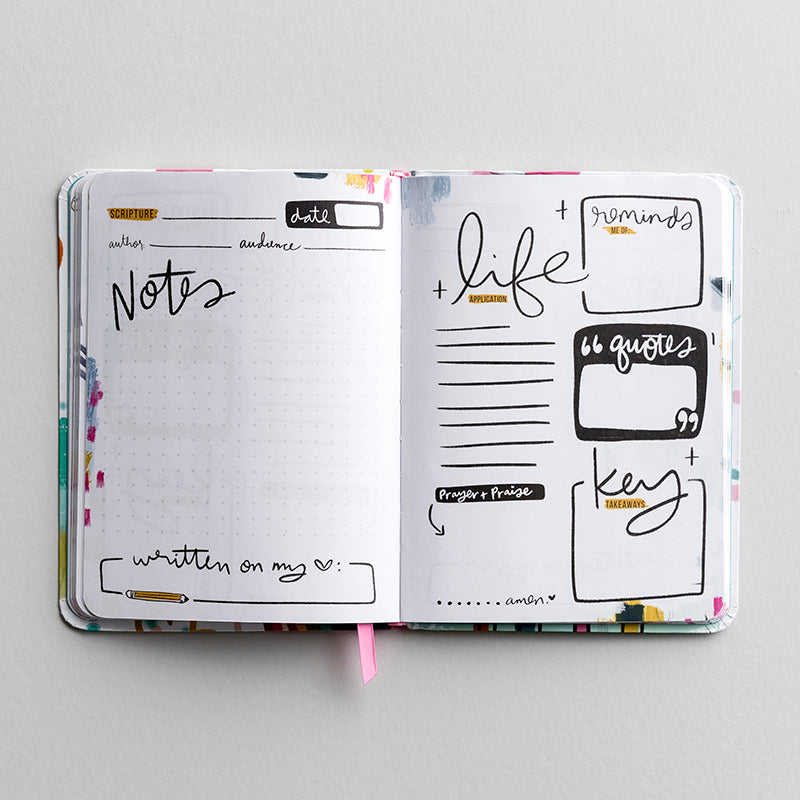 SCRIPTURE: date
author audience
Notes
written on my ♡:
life
APPLICATION
Prayer + Praise
amen.♥
reminds
ME OF...
“ quotes
”
key
TAKEAWAYS